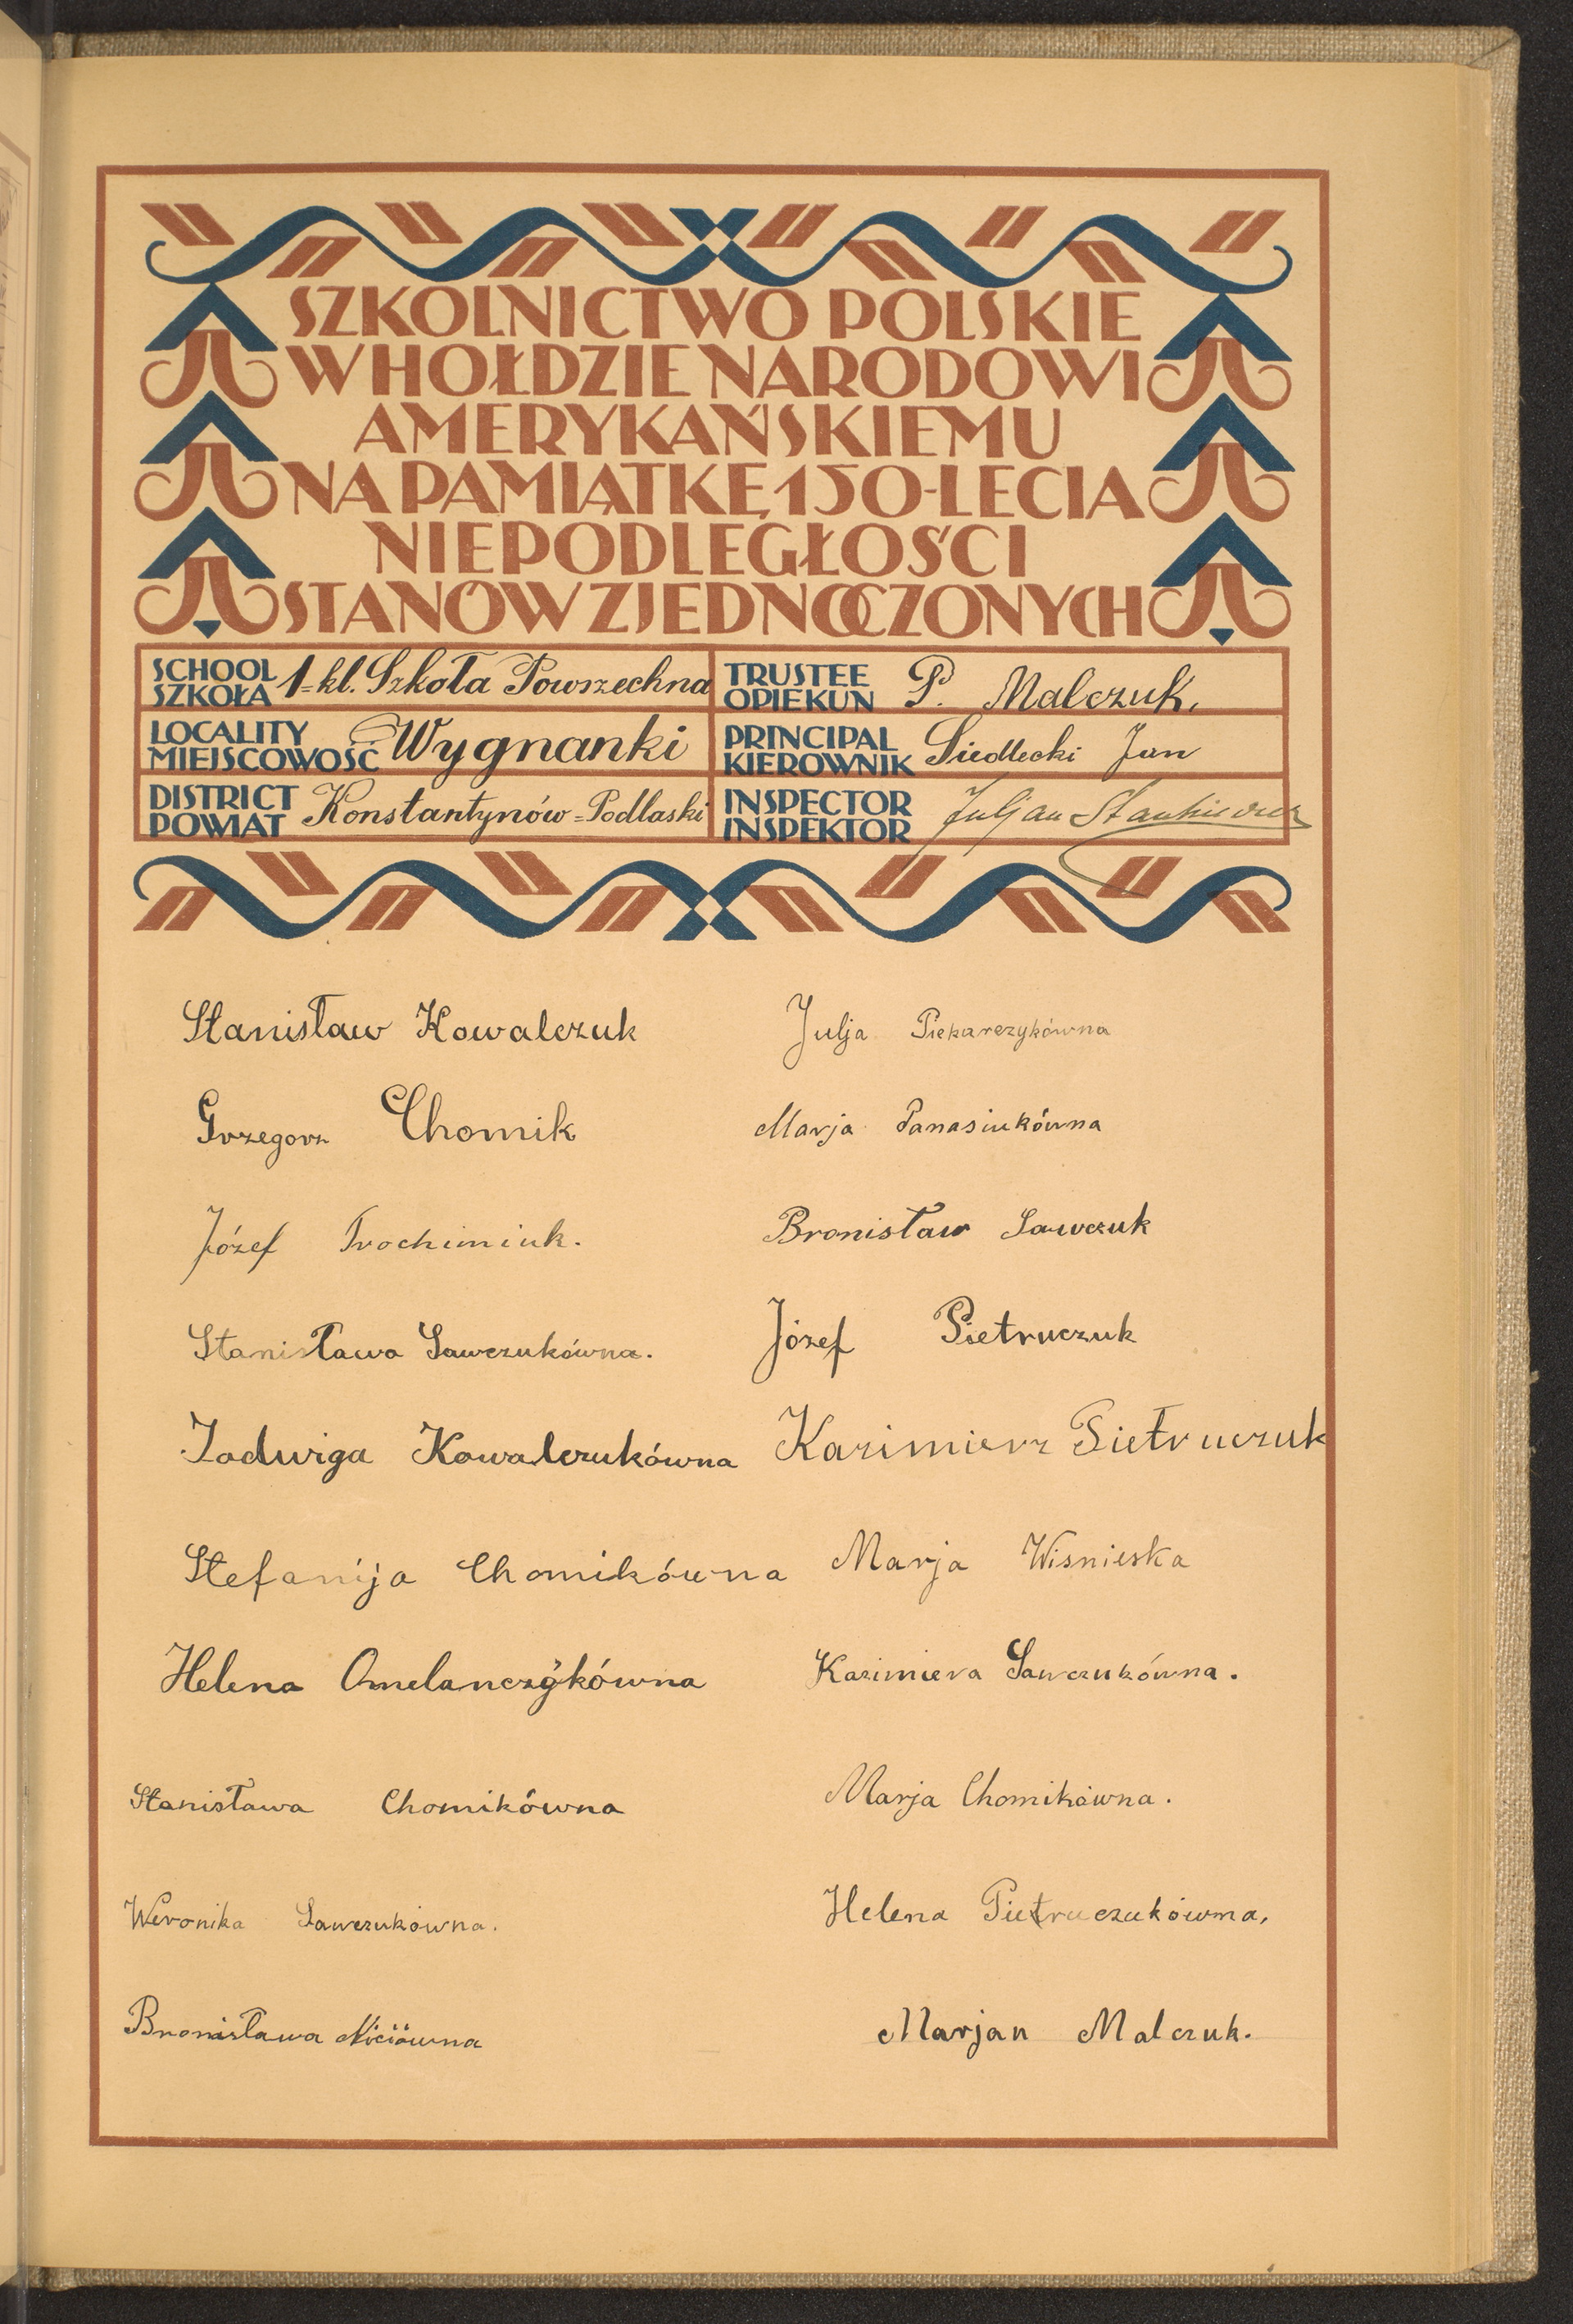 SZKOLNICTWO POLSKIE
W HOŁDZIE NARODOWI
AMERYKAŃSKIEMU
NA PAMIĄTKĘ 150-LECIA
NIEPODLEGŁOŚCI
STANÓW ZJEDNOCZONYCH
SCHOOL
SZKOŁA 1-kl. Szkoła Powszechna
TRUSTEE
OPIEKUN P. Malczuk.
LOCALITY
MIEJSCOWOŚĆ Wygnanki
PRINCIPAL
KIEROWNIK Siedlecki Jan
DISTRICT
POWIAT Konstantynów=Podlaski
INSPECTOR
INSPEKTOR Juljan Stankiewicz
Stanisław Kowalczuk
Grzegorz Chomik
Józef Trochimiuk.
Stanisława Sawczukówna.
Jadwiga Kowalczukówna
Stefanija Chomikówna
Helena Omelanczykówna
Stanisława Chomikówna
Weronika Sawczukówna.
Bronisława Niciówna
Julja Piekarczykówna
Marja Panasiukówna
Bronisław Sawczuk
Józef Pietruczuk
Kazimierz Pietruczuk
Marja Wisnieska
Kazimiera Sawczukówna.
Marja Chomikówna.
Helena Pietruczukówma,
Marjan Malczuk.